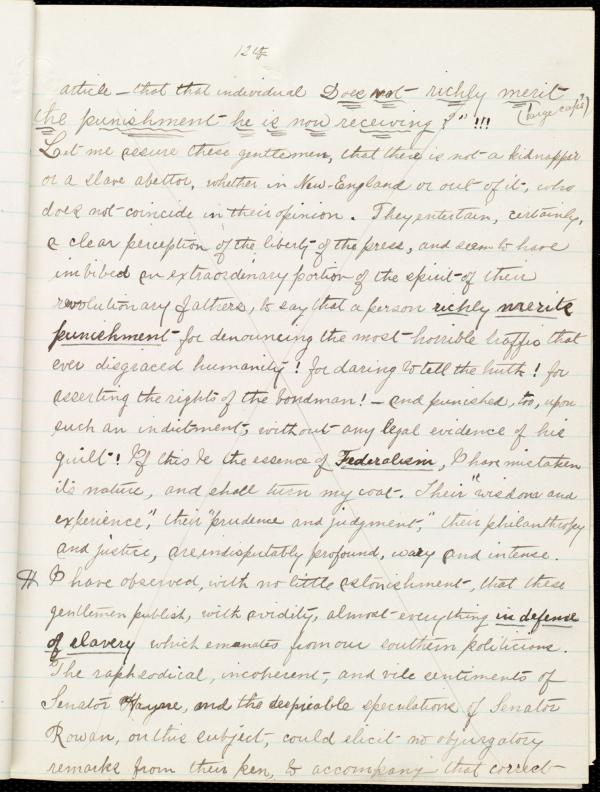 124
article – that that individual Does not richly merit
(large caps?)
the punishment he is now receiving?" !!!
Let me assure these gentlemen, that there is not a kidnapper
or a slave abettor, whether in New-England or out of it, who
does not coincide in their opinion. They entertain, certainly,
a clear perception of the liberty of the press, and seem to have
imbibed an extraordinary portion of the spirit of their
revolutionary fathers, to say that a person richly merits
punishment for denouncing the most horrible traffic that
ever disgraced humanity! for daring to tell the truth! for
asserting the rights of the bondman! – and punished, too, upon
such an indictment, without any legal evidence of his
guilt! If this be the essence of Federalism, I have mistaken
its nature, and shall turn my coat. Their "wisdom and
experience", their "prudence and judgment," their philanthropy
and justice, are indisputably profound, wary and intense.
I have observed, with no little astonishment, that these
gentlemen publish, with avidity, almost everything in defense
of slavery which emanates from our southern politicians.
The raphsodical, incoherent, and vile sentiments of
Senator Hayne, and the despicable speculations of Senator
Rowan, on this subject, could elicit no objurgatory
remarks from their pen, to accompany that correct